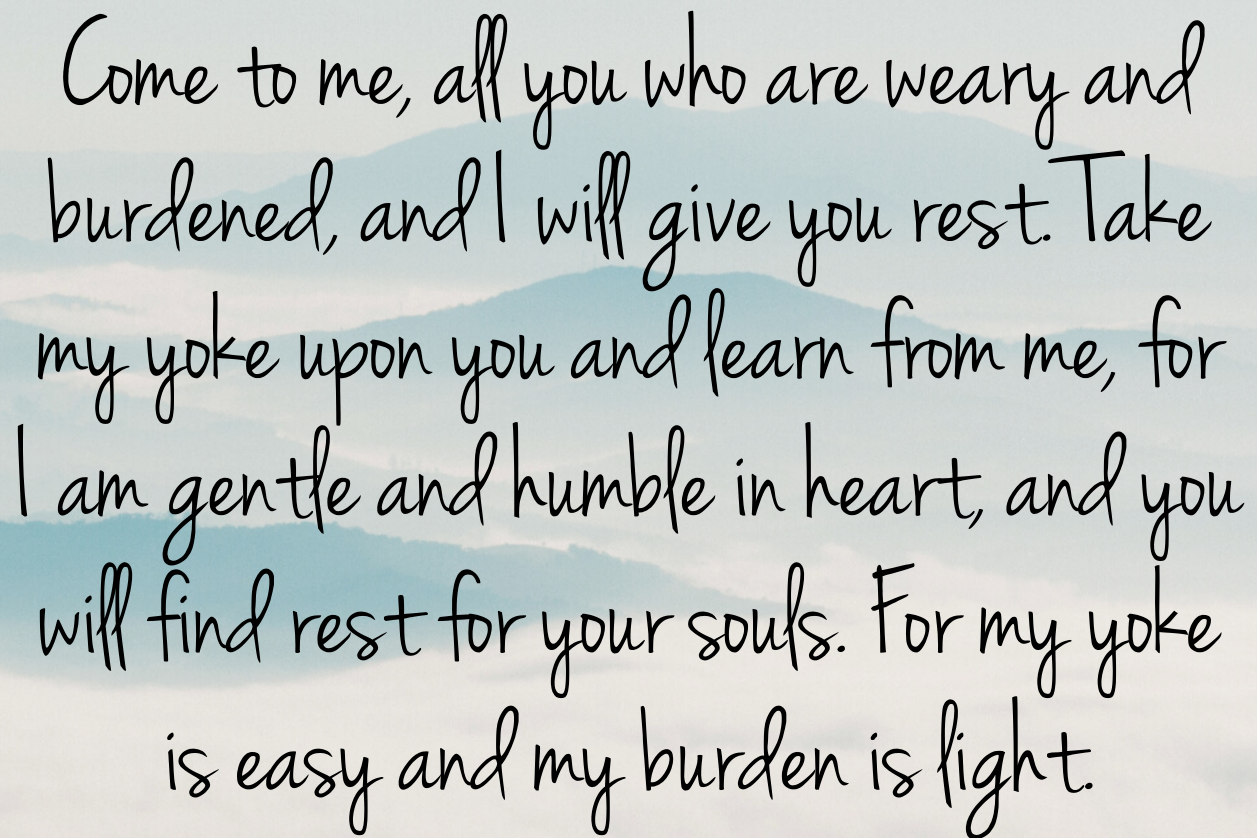 Come to me, all you who are weary and
burdened, and I will give you rest. Take
my yoke upon you and learn from me, for
I am gentle and humble in heart, and you
will find rest for your souls. For my yoke
is easy and my burden is light.